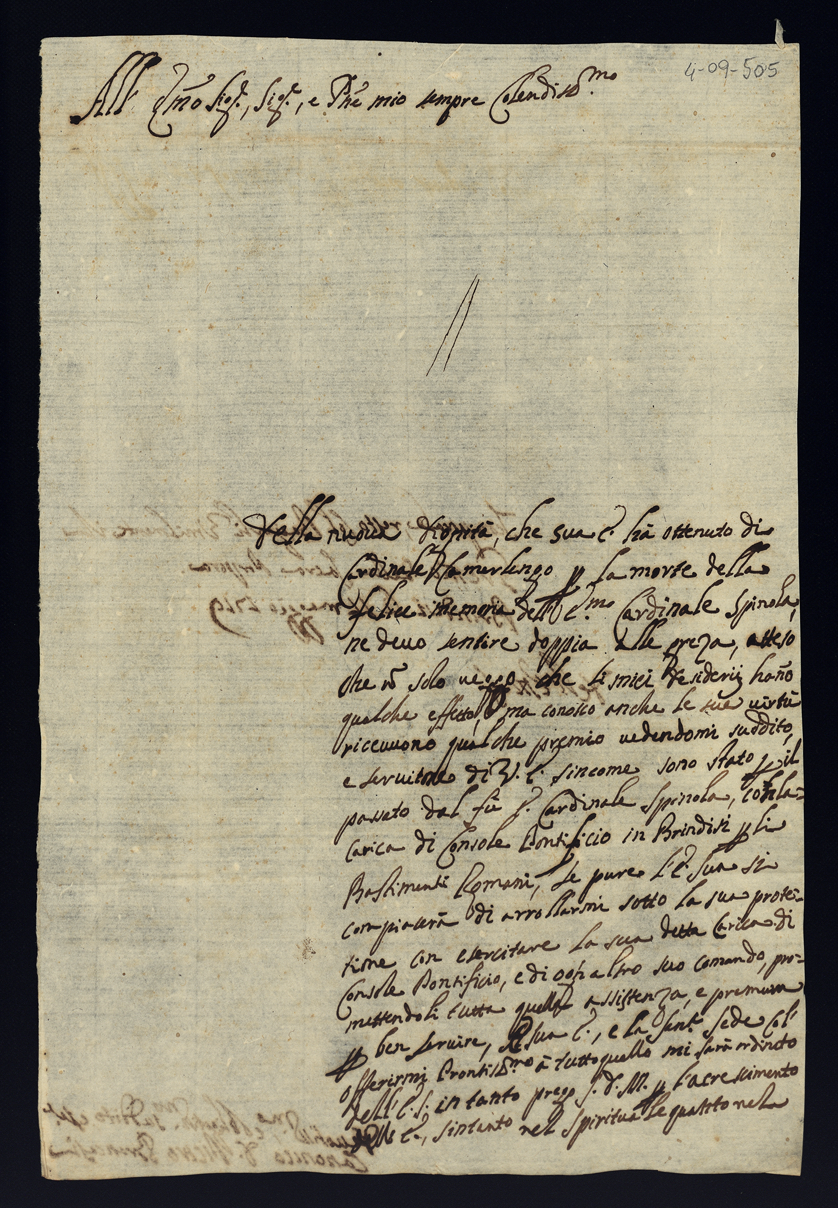 4-09-505
All' Emo Sigr., Sigr., e Pne mio sempre Colendiss.mo
Della nuova dignità, che sua E. hà ottenuto di
Cardinale Camerlengo p la morte della
felice memoria dell' E.mo Cardinale Spinola,
ne devo sentire doppia allegreza, atteso
che nõ solo veggo che li miei desiderij hanõ
qualche effetto, ma conosco anche le sue virtù
ricevuono qualche premio vedendomi suddito,
e servitore di V. E. sincome sono stato p il
passato dal fù E. Cardinale Spinola, con la
carica di Console Pontificio in Brindisi p li
Bastimenti Romani, se pure l'E. Sua si
compiacerà di arrollarmi sotto la sua prote=
tione con esercitare la sua detta Carica di
Console Pontificio, e di ogn' altro suo comando, pro=
mettendoli tutta quella assistenza, e premura
p ben servire, sua E., e la Sant. Sede col'
offerirmi Prontiss.mo à tutto quello mi sarà ordinato
dell' E. S. in tanto prego S. D. M. p l'acrescimento
E., sintanto nel spirituale quanto nela